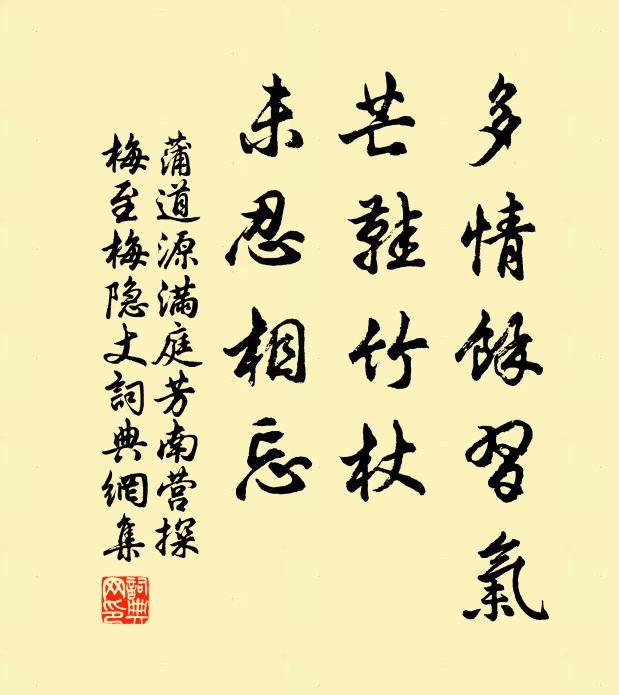 多情餘習氣
芒鞋竹杖
未忍相忘
蒲道源滿庭芳南营探
梅至梅隐丈詞典網集
詞典网印